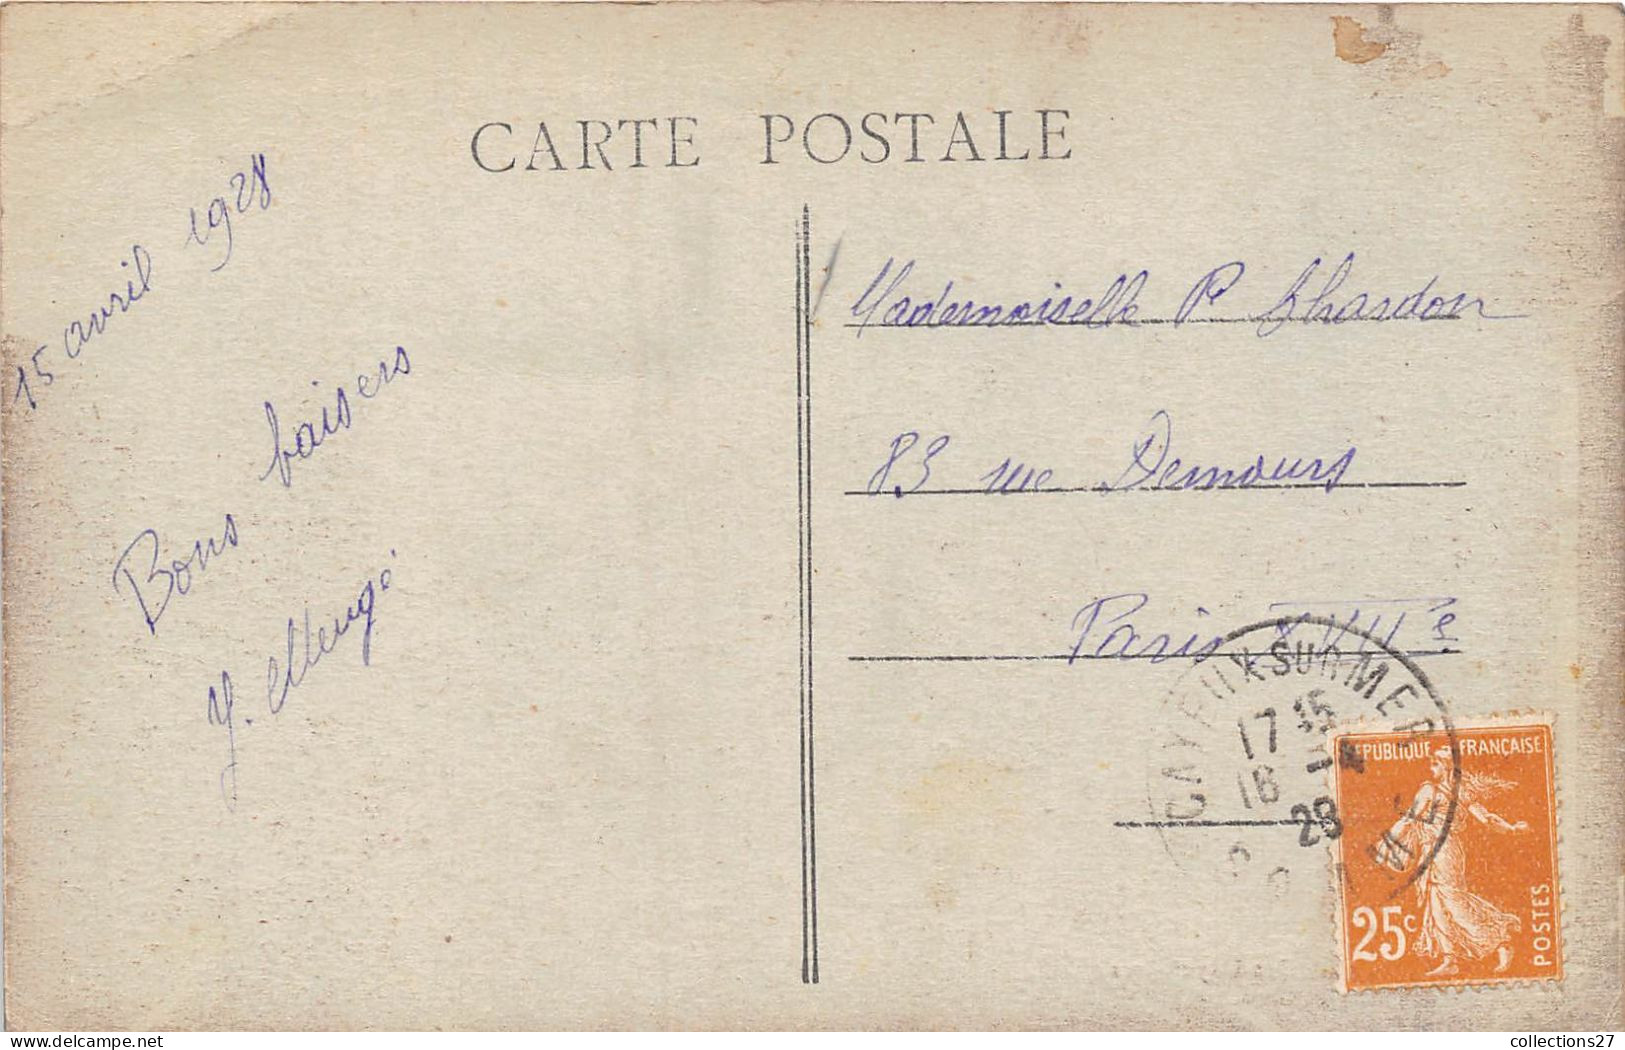 CARTE POSTALE
15 avril 1928
Bons baisers
Mademoiselle P. Chardon
83 rue Demours
Paris XVIIe
CAYEUX SUR MER
17 15
16 -4
28
SOMME
REPUBLIQUE FRANÇAISE
25c
POSTES
delcampe.net
collections27